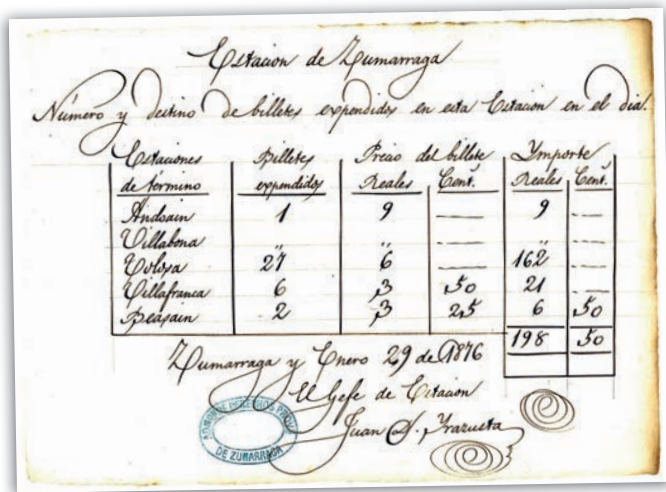 Estacion de Zumarraga
Número y destino de billetes expendidos en esta Estacion en el dia.
Estaciones de término Billetes expendidos Precio del billete Ymporte
Reales Cent. Reales Cent.
Andoain 1 9 — 9 —
Villabona " " — " —
Tolosa 27 6 — 162 —
Villafranca 6 3 50 21 —
Beasain 2 3 25 6 50
198 50
Zumarraga y Enero 29 de 1876
El Gefe de Estacion
Juan D. Yrazusta
DE ZUMARRAGA